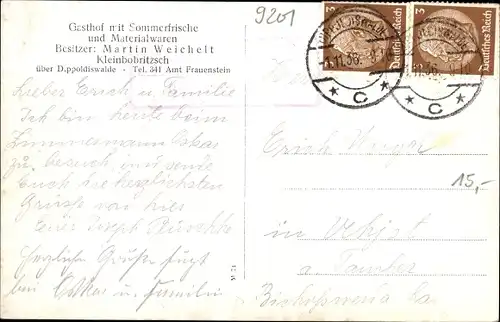 9201
Gasthof mit Sommerfrische
und Materialwaren
Besitzer: Martin Weichelt
Kleinbobritzsch
über Dippoldiswalde - Tel. 341 Amt Frauenstein
Lieber Erich u. Familie
Ich bin heute beim
Oskar
zu besuch und sende
Euch die herzlichsten
Grüsse von hier
Euer Joseph
Herzliche Grüße fügt
bei Oskar u. Familie
3 Deutsches Reich
3 Deutsches Reich
C
C
Erich
15,-
in
a. Taucher
Bischofswerda Sa.